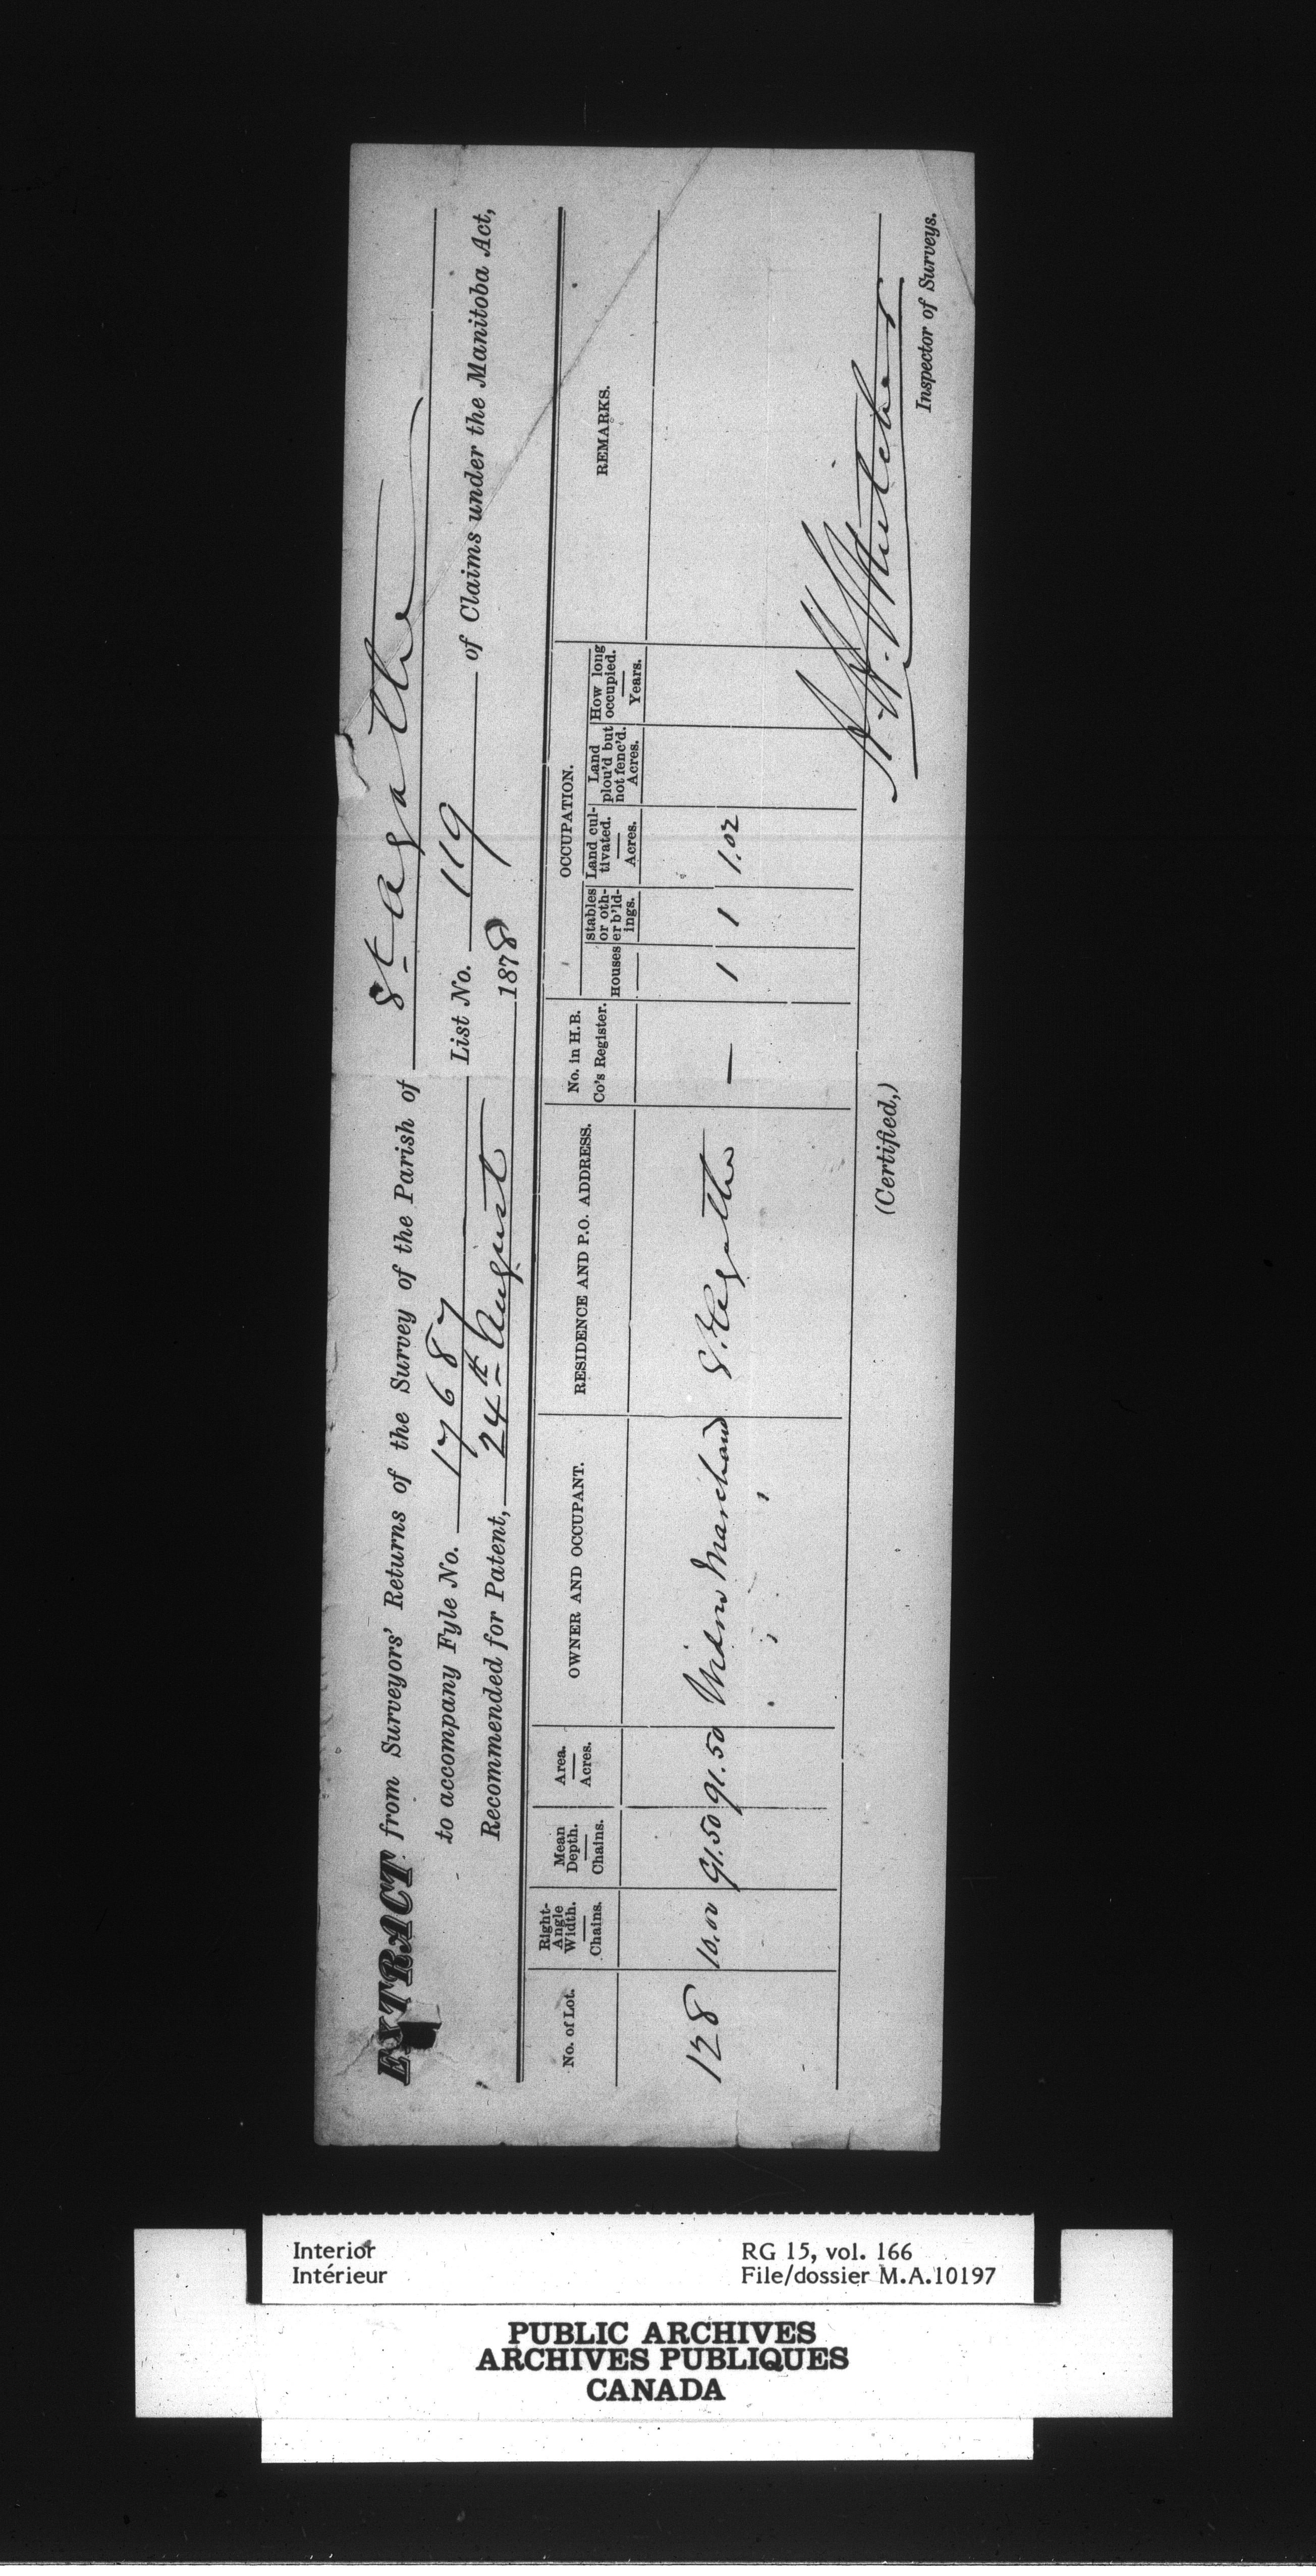 EXTRACT from Surveyors' Returns of the Survey of the Parish of St Agathe
to accompany Fyle No. 17687 List No. 119 of Claims under the Manitoba Act,
Recommended for Patent, 24th August 1878
No. of Lot. Right-Angle Width. — Chains. Mean Depth. — Chains. Area. — Acres. OWNER AND OCCUPANT. RESIDENCE AND P.O. ADDRESS. No. in H.B. Co's Register. OCCUPATION. REMARKS.
Houses — stables or other b'ldings. Land cultivated. — Acres. Land plou'd but not fenc'd. Acres. How long occupied. — Years.
128 10.00 91.50 91.50 Widow Marchand St Agathe — 1 1 1.02
(Certified,)
Inspector of Surveys.
Interior
Intérieur
RG 15, vol. 166
File/dossier M.A.10197
PUBLIC ARCHIVES
ARCHIVES PUBLIQUES
CANADA